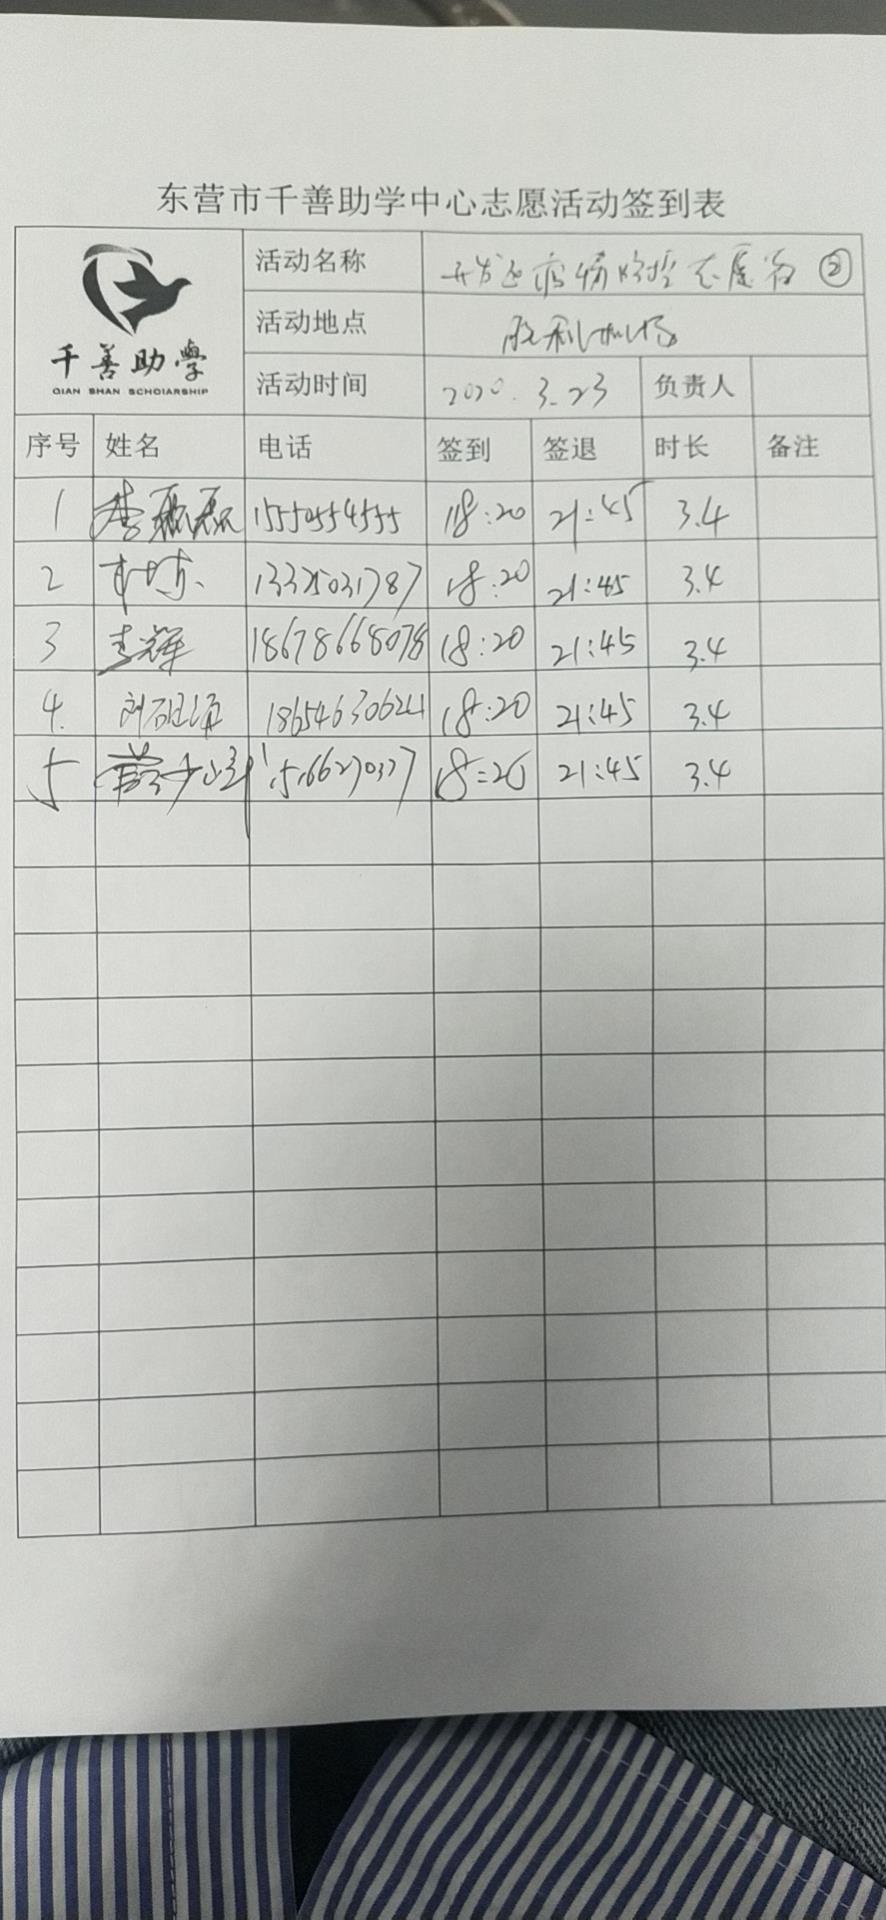 东营市千善助学中心志愿活动签到表
千善助学
QIAN SHAN SCHOIARSHIP
活动名称 开发区疫情防控志愿者 ②
活动地点 胜利机场
活动时间 2020.3.23 负责人
序号 姓名 电话 签到 签退 时长 备注
1 李磊磊 15550554555 18:20 21:45 3.4
2 13325031787 18:20 21:45 3.4
3 李辉 18678668078 18:20 21:45 3.4
4. 18:20 21:45 3.4
5 18:20 21:45 3.4